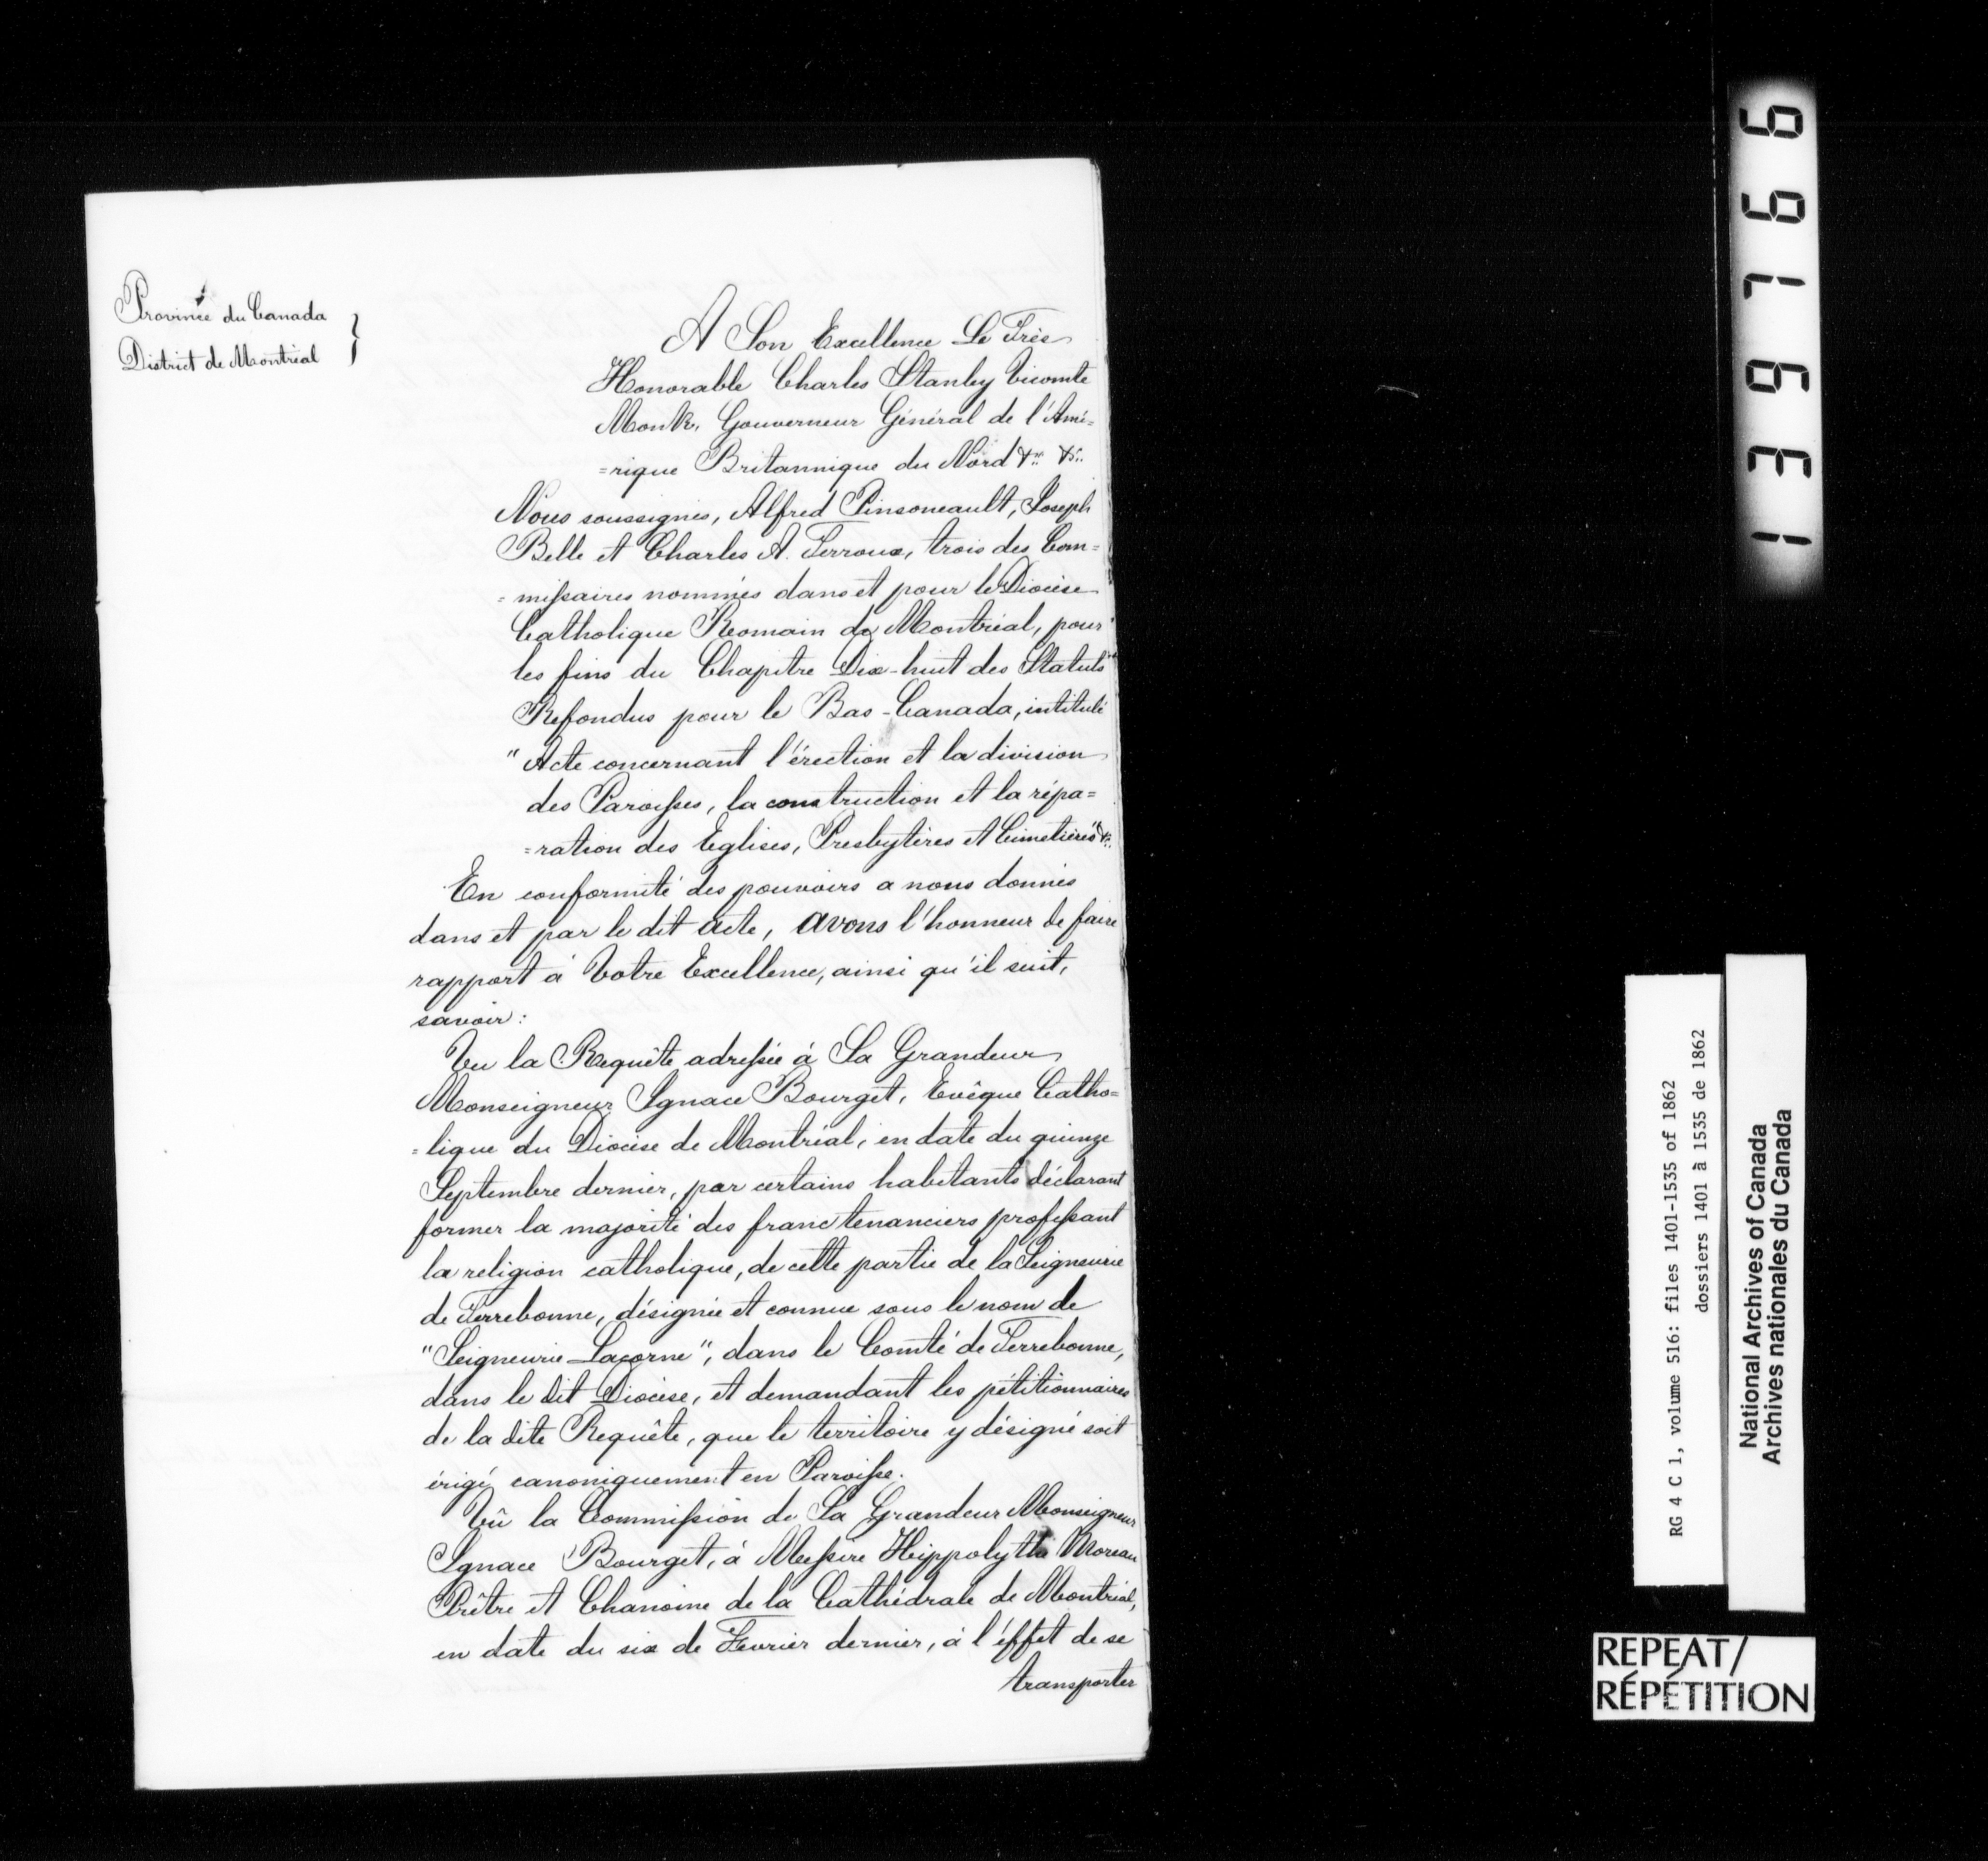 Province du Canada
District de Montréal
A Son Excellence Le Très
Honorable Charles Stanley Vicomte
Monk, Gouverneur Général de l'Amé=
=rique Britannique du Nord &c. &c.
Nous soussignés, Alfred Pinsoneault, Joseph
Belle et Charles A. Terroux, trois des Com=
=missaires nommés dans et pour le Diocèse
Catholique Romain de Montréal, pour
les fins du Chapitre Dix-huit des Statuts
Refondus pour le Bas-Canada, intitulé
"Acte concernant l'érection et la division
des Paroisses, la construction et la répa=
=ration des Eglises, Presbytères et Cimetières" &c.
En conformité des pouvoirs a nous donnés
dans et par le dit acte, avons l'honneur de faire
rapport à Votre Excellence, ainsi qu'il suit,
savoir:
Vu la Requête adressée à Sa Grandeur
Monseigneur Ignace Bourget, Evêque Catho=
=lique du Diocèse de Montréal, en date du quinze
Septembre dernier, par certains habitants déclarant
former la majorité des franc tenanciers professant
la religion catholique, de cette partie de la Seigneurie
de Terrebonne, désignée et connue sous le nom de
"Seigneurie Lacorne", dans le Comté de Terrebonne,
dans le dit Diocèse, et demandant les pétitionnaires
de la dite Requête, que le territoire y désigné soit
érigé canoniquement en Paroisse.
Vû la Commission de Sa Grandeur Monseigneur
Ignace Bourget, à Messire Hippolythe Moreau
Prêtre et Chanoine de la Cathédrale de Montréal,
en date du six de Fevrier dernier, à l'éffet de se
transporter
139766
RG 4 C 1, volume 516: files 1401-1535 of 1862
dossiers 1401 à 1535 de 1862
National Archives of Canada
Archives nationales du Canada
REPEAT/
RÉPÉTITION